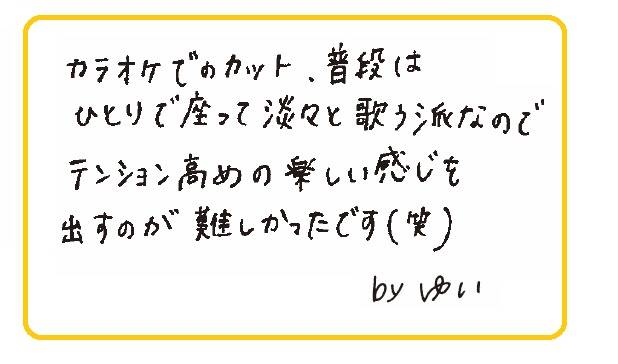 カラオケでのカット、普段は
ひとりで座って淡々と歌う派なので
テンション高めの楽しい感じを
出すのが難しかったです(笑)
by ゆい